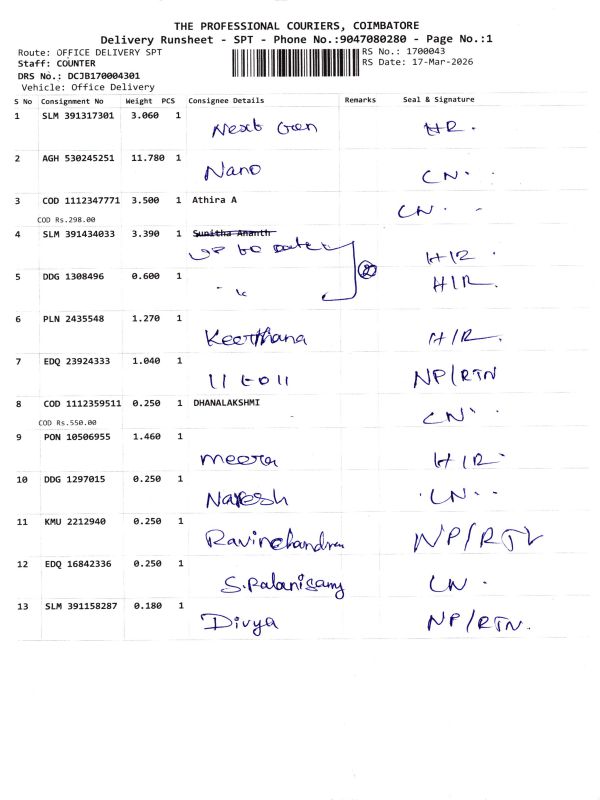 THE PROFESSIONAL COURIERS, COIMBATORE
Delivery Runsheet - SPT - Phone No.:9047080280 - Page No.:1
Route: OFFICE DELIVERY SPT RS No.: 1700043
Staff: COUNTER RS Date: 17-Mar-2026
DRS No.: DCJB170004301
Vehicle: Office Delivery
S No Consignment No Weight PCS Consignee Details Remarks Seal & Signature
1 SLM 391317301 3.060 1 Next Gen H/R.
2 AGH 530245251 11.780 1 Nano CN.
3 COD 1112347771 3.500 1 Athira A CN.
COD Rs.298.00
4 SLM 391434033 3.390 1 Sunitha Ananth
up to date H/R.
5 DDG 1308496 0.600 1 - 〃 ② H/R.
6 PLN 2435548 1.270 1 Keerthana H/R.
7 EDQ 23924333 1.040 1 11 to 11 NP/RTN
8 COD 1112359511 0.250 1 DHANALAKSHMI CN.
COD Rs.550.00
9 PON 10506955 1.460 1 meera H/R
10 DDG 1297015 0.250 1 Naresh CN.
11 KMU 2212940 0.250 1 Ravinchandran NP/RTN
12 EDQ 16842336 0.250 1 S.Palanisamy CN.
13 SLM 391158287 0.180 1 Divya NP/RTN.